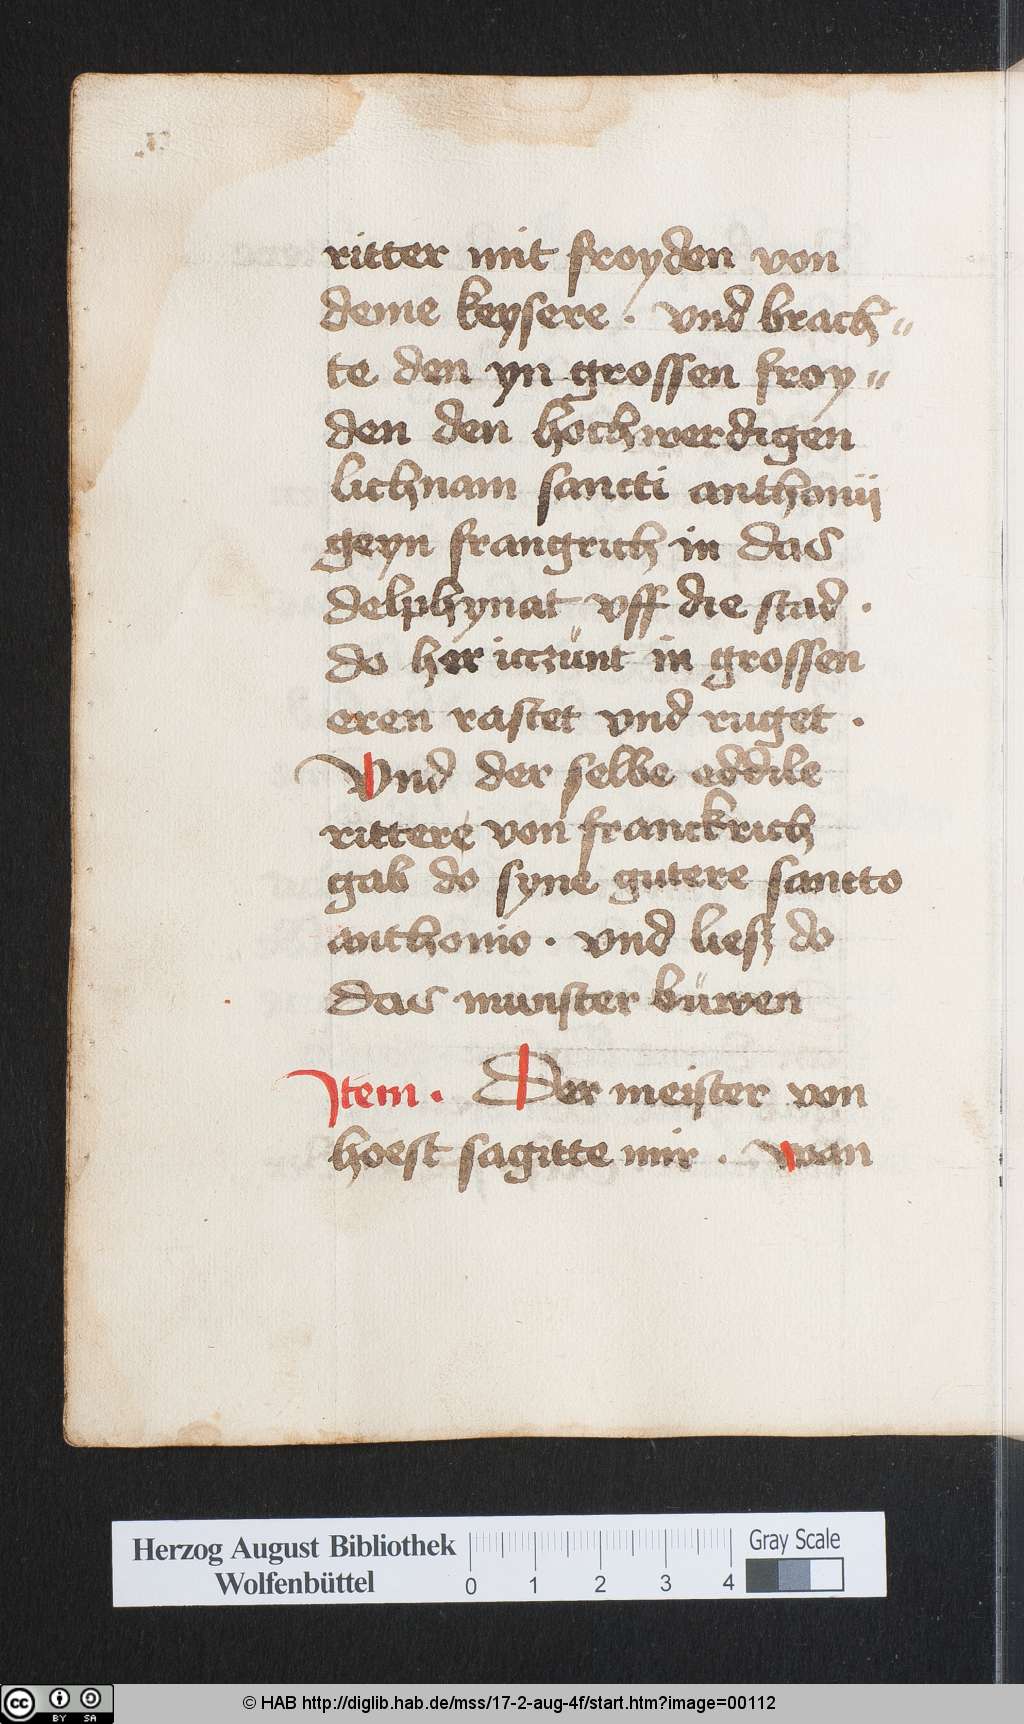 ritter mit froyden von
deme keysere . vnd brach„
te den yn grossen froy„
den den hochwerdigen
lichnam sancti anthonii
geyn frangrich in das
delphynat vff die stad .
do her iczünt in grossen
eren rastet vnd ruget .
Vnd der selbe eddile
rittere von franckrich
gab do syne gutere sancto
anthonio . vnd liesz do
das munster büwen
Item . Der meister von
hoest sagitte mir . wan
Herzog August Bibliothek
Wolfenbüttel
0 1 2 3 4
Gray Scale
cc BY SA
© HAB http://diglib.hab.de/mss/17-2-aug-4f/start.htm?image=00112